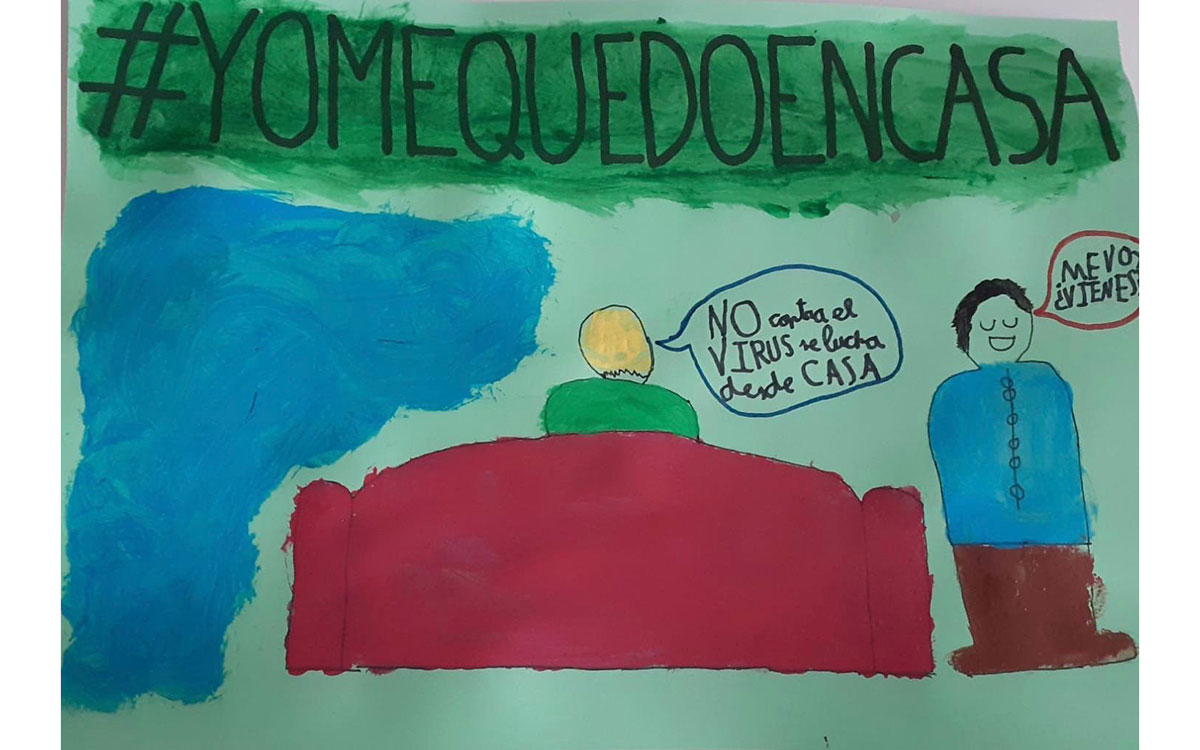 #YOMEQUEDOENCASA
NO contra el
VIRUS se lucha
desde CASA
ME VOY
¿VIENES?